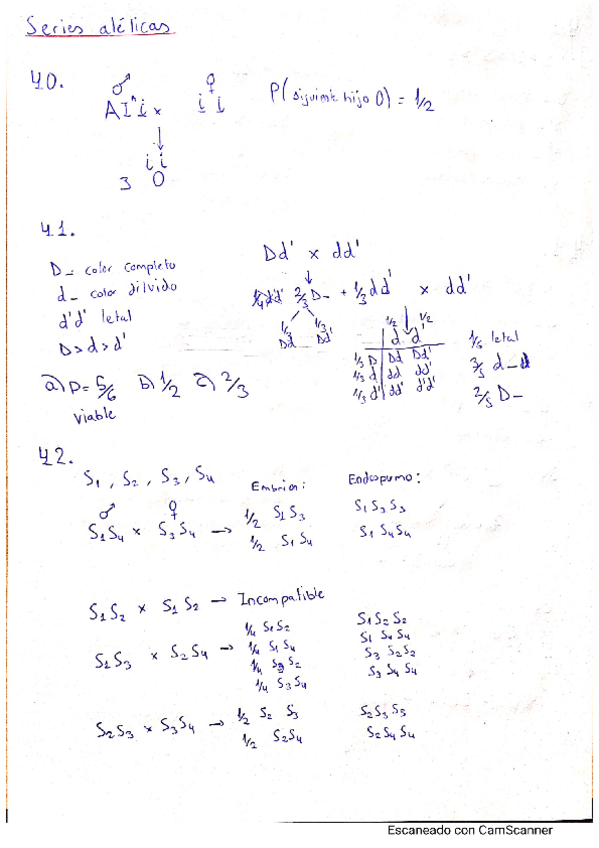 Series alélicas
40.
♂ ♀
AIᴬi x ii P(siguiente hijo O) = 1/2
↓
ii
3 O
41.
Dd' x dd'
D_ color completo
d_ color diluido
d'd' letal
D>d>d'
1/4 d'd' 2/3 D_ + 1/3 dd' x dd'
1/3 1/3
Dd Dd'
1/2 1/2
d d'
1/3 D Dd Dd'
1/3 d dd dd'
1/3 d' dd' d'd'
1/6 letal
3/5 d_
2/5 D_
a) P= 5/6 b) 1/2 c) 2/3
viable
42.
S1, S2, S3, S4
Embrion: Endospumo:
♂ ♀
S1S4 x S3S4 → 1/2 S1S3 S1S3S3
1/2 S1S4 S1S4S4
S1S2 x S1S2 → Incompatible
S1S3 x S2S4 → 1/4 S1S2 S1S2S2
1/4 S1S4 S1 S4S4
1/4 S3S2 S3 S2S2
1/4 S3S4 S3 S4S4
S2S3 x S3S4 → 1/2 S2 S3 S2S3S3
1/2 S2S4 S2S4S4
Escaneado con CamScanner